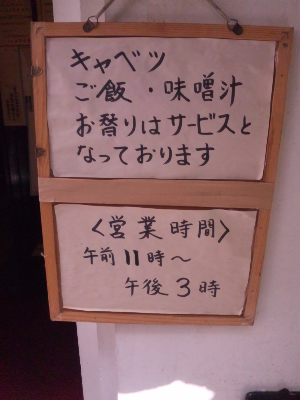 キャベツ
ご飯・味噌汁
お替りはサービスと
なっております
〈営業時間〉
午前11時〜
午後3時